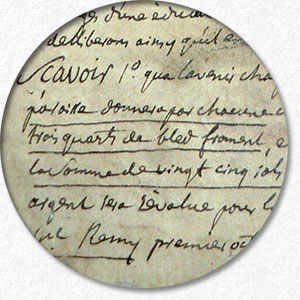 d'une educa
deliberons ainsy qu'il e
Scavoir 1º. qua l'avenir cha
paroisse donnera par chacune
trois quarts de bled froment, e
la somme de vingt cinq sols
argent sera Evalue pour l
Remy premier oc